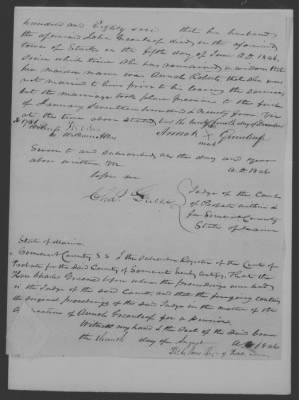 hundred and Eighty seven that her husband
the aforesaid John Greenleaf died in the aforesaid
town of Starks on the fifth day of June A.D. 1846.
Since which time she has remained a widow that
her maiden name was Annah Roberts that she was
not married to him prior to his leaving the service
but the marriage took place previous to the first
of January Seventeen hundred & ninety four viz
at the time above stated
Annah X Greenleaf
mark
Sworn to and subscribed, on the day and year
above written
A.D. 1846
before me
Judge of the Court
of Probate within &
for Somerset County
State of Maine
State of Maine
Somerset County S S I the Register of the Court of
Probate for the said County of Somerset hereby certify, that the
Hon Charles Greene before whom the proceedings were had,
is the Judge of the said Court, and that the foregoing contains
the original proceedings of the said Judge in the matter of the
of Annah Greenleaf for a pension
Witness my hand & the Seal of the said Court
the day of August A.D. 1846